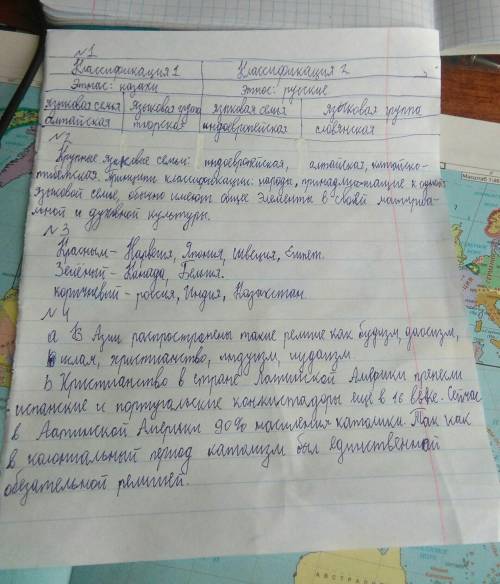 №1
Классификация 1 Классификация 2
Этнос: казахи Этнос: русские
языковая семья языковая группа языковая семья языковая группа
алтайская тюрская индоевропейская славянская
№2
Крупные языковые семьи: индоевропейская, алтайская, китайско-
тибетская. принципы классификации: народы, принадлежащие к одной
языковой семье, обычно имеют общие элементы в своей материа-
льной и духовной культуры.
№3
Красным - Норвегия, Япония, швеция, Египет.
Зелёный - Канада, Бельгия.
коричневый - россия, Индия, Казахстан
№4
а В Азии распространены такие религие как будизм, даосизм,
ислам, христианство, индуизм, иудаизм
b Христианство в стране Латинской Америки принесли
испанские и португальские конкистадоры еще в 16 веке. Сейчас
в Латинской Америки 90% населения католики. Так как
в колониальный период католизм был единственной
обезательной религией.
АВСТРАЛИЯ